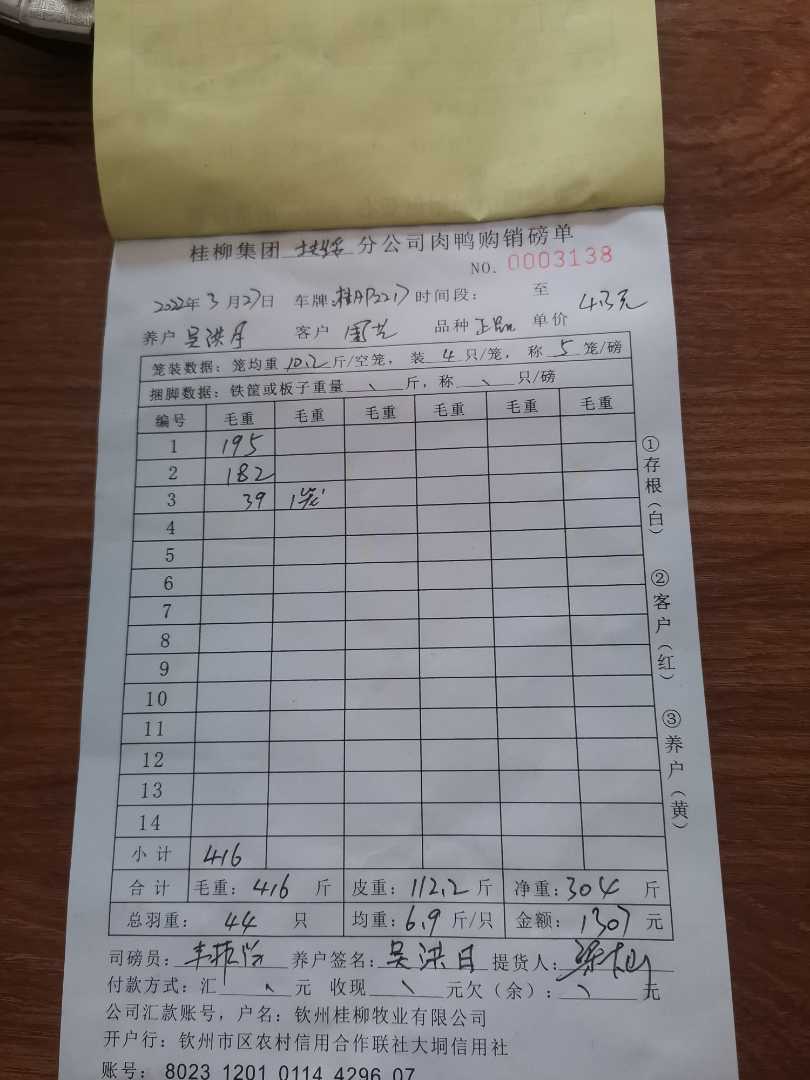 桂柳集团 扶绥 分公司肉鸭购销磅单
NO. 0003138
2022年3月27日 车牌: 时间段: 至
养户 吴洪月 客户 品种 正品 单价 4.3元
笼装数据: 笼均重 10.2 斤/空笼, 装 4 只/笼, 称 5 笼/磅
捆脚数据: 铁筐或板子重量 、 斤, 称 、 只/磅
编号 毛重 毛重 毛重 毛重 毛重 毛重
1 195
2 182
3 39 1笼
4
5
6
7
8
9
10
11
12
13
14
小计 416
合计 毛重: 416 斤 皮重: 112.2 斤 净重: 304 斤
总羽重: 44 只 均重: 6.9 斤/只 金额: 1307 元
司磅员: 养户签名: 吴洪日 提货人:
付款方式: 汇 、 元 收现 、 元欠(余): 、 元
公司汇款账号, 户名: 钦州桂柳牧业有限公司
开户行: 钦州市区农村信用合作联社大垌信用社
账号: 8023 1201 0114 4296 07
①存根(白)
②客户(红)
③养户(黄)